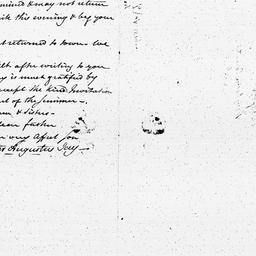 mined & may not return
this evening & beg your
t returned to town we
after writing to you
is much gratified by
accept the kind invitation
of the Summer -
& Sister -
dear father
very affect Son
Augustus Jay -